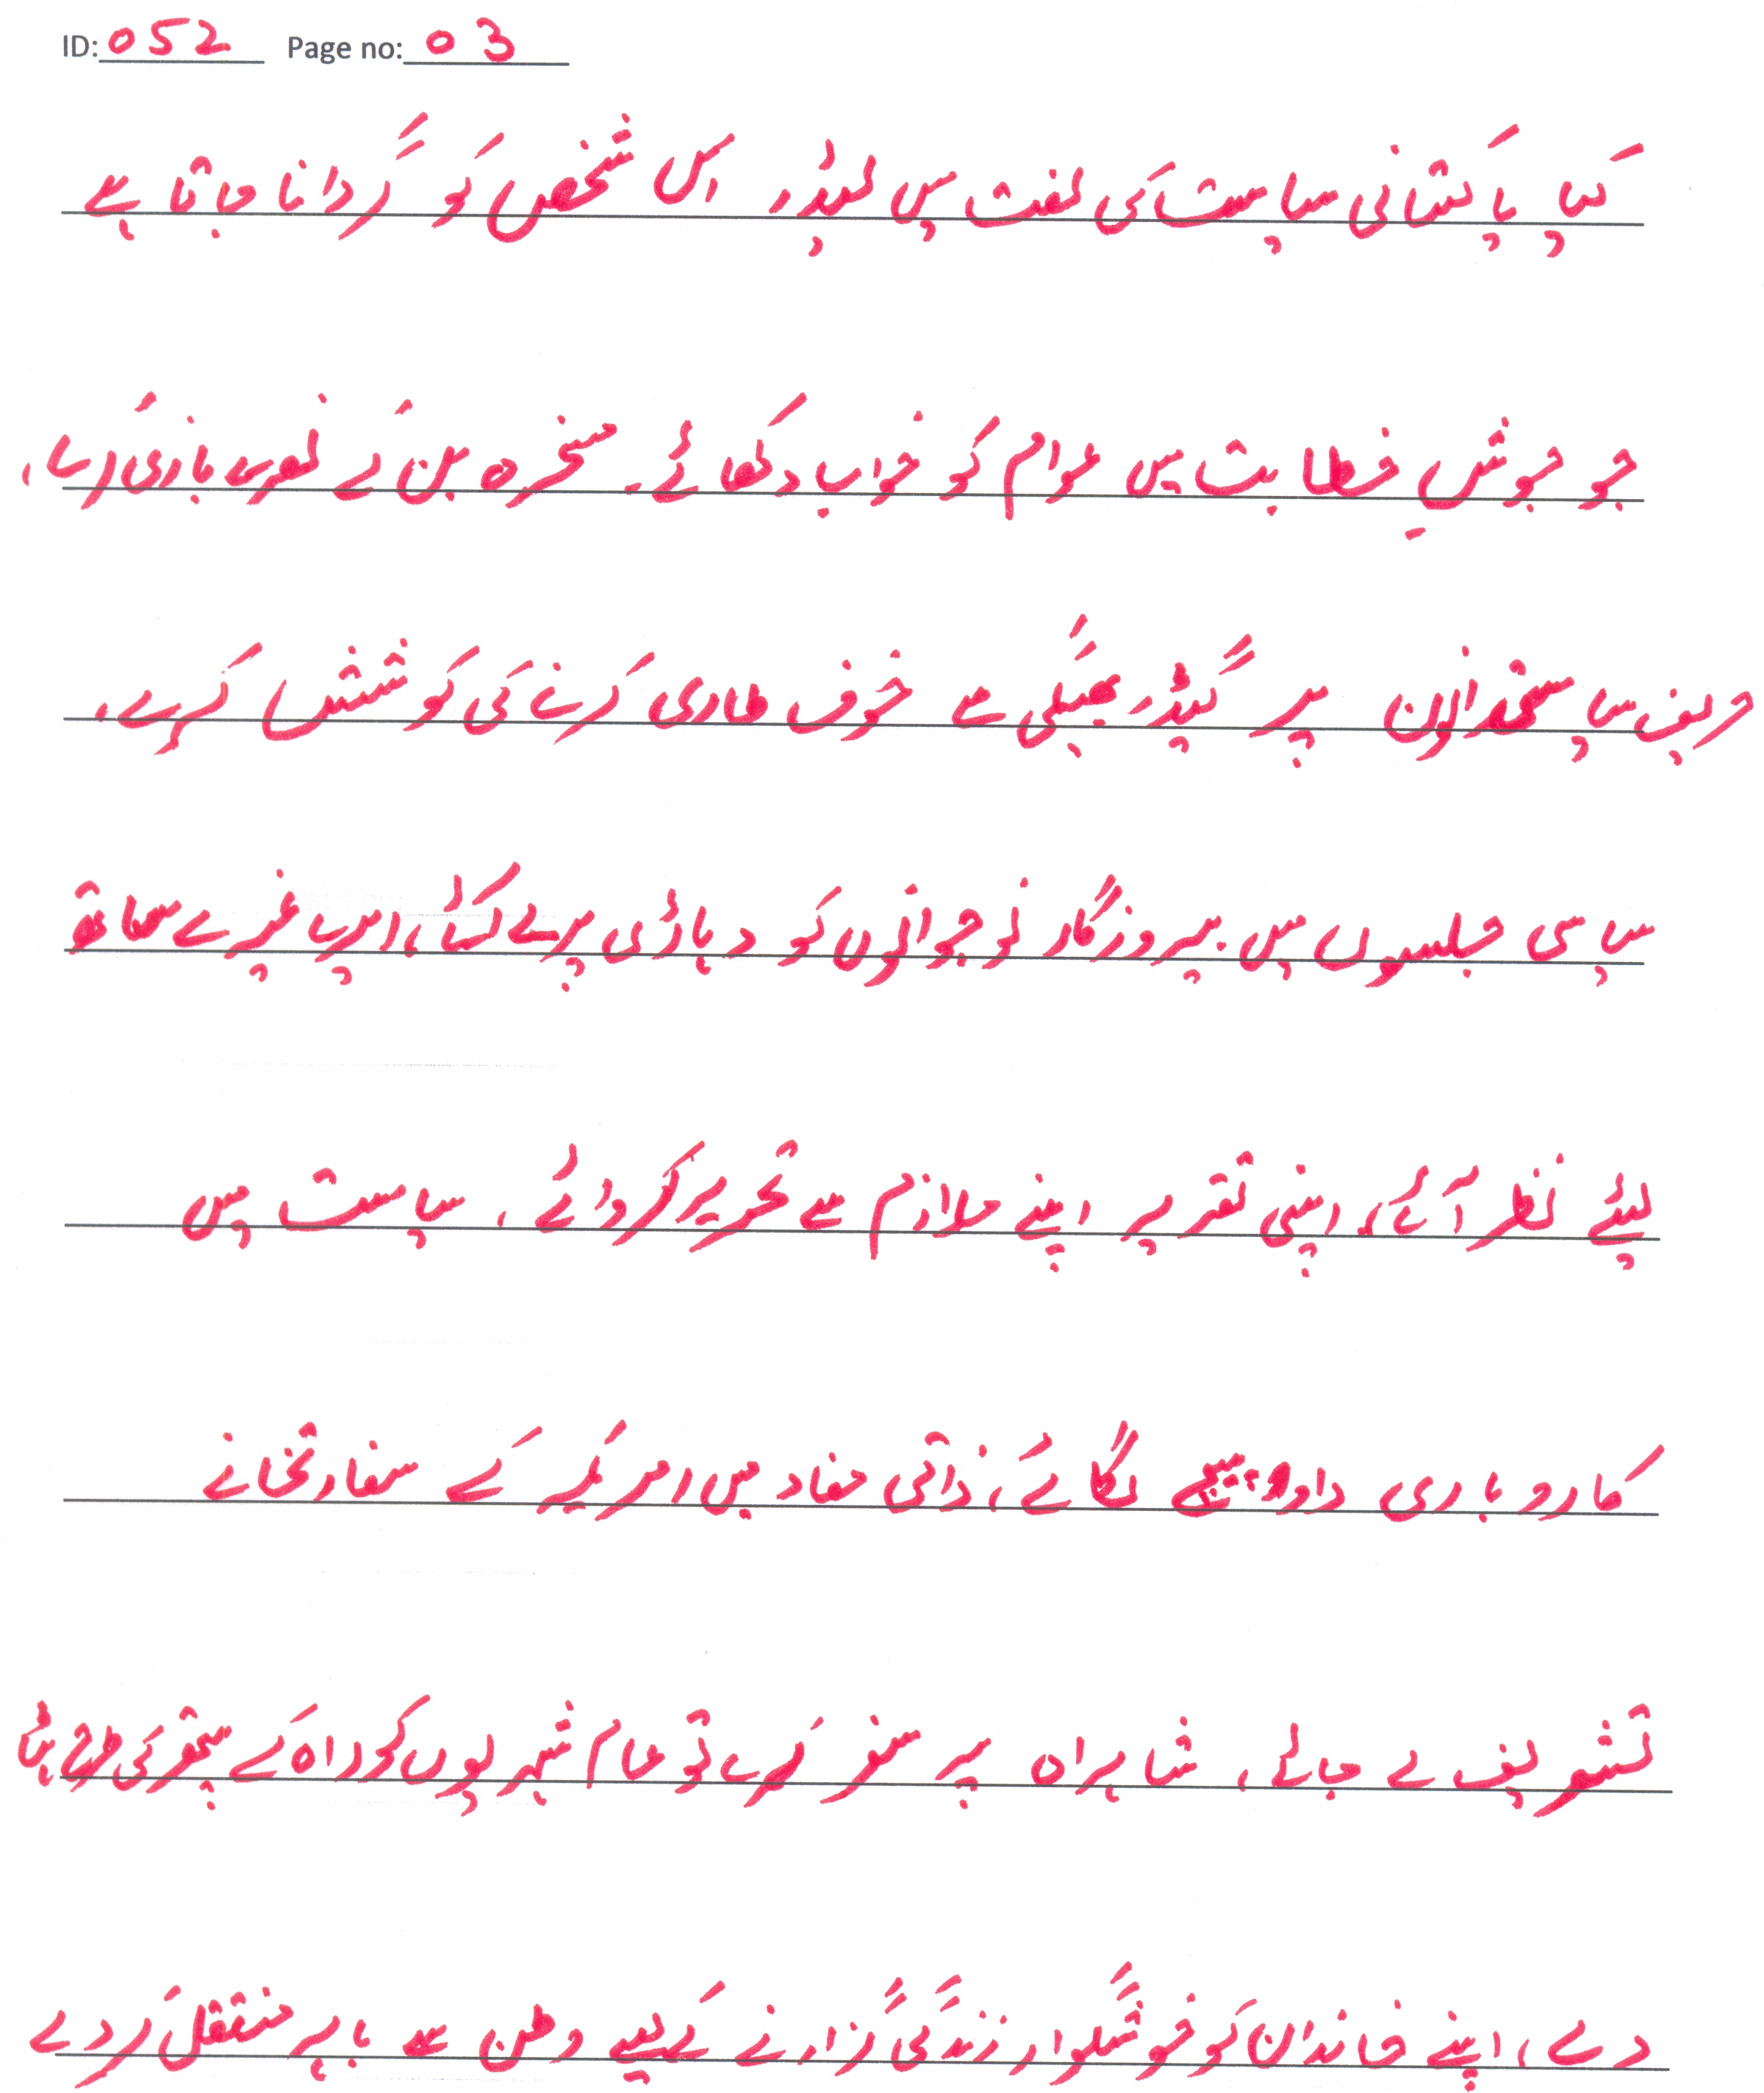 ID: 052 Page no: 03
کیا پاکستانی سیاست کی لغت میں لیڈر اس شخص کو گردانا جاتا ہے
جو جوشِ خطابت میں عوام کو خواب دکھائے۔ مسخرہ بن کے نعرے بازی کرے،
حریف سیاستدانوں پر گیڈر بھبکی سے خوف طاری کرنے کی کوشش کرے،
سیاسی جلسوں میں بیروزگار نوجوانوں کو دہاڑی پر لے آئے، امیر غریب کے ساتھ
لیئے نظر آئے، اپنی تقریر اپنے ملازم سے تحریر کروائے، سیاست میں
کاروباری داوو پیچ لگائے، ذاتی مفاد میں امریکہ کے سفارتخانے
تشریف لے جائے، شاہراہ پر سفر کرے تو عام شہریوں کو راہ کے پتھر کی طرح ہٹا
دے، اپنے خاندان کو خوشگوار زندگی گزارنے کے لیے وطن سے باہر منتقل کر دے